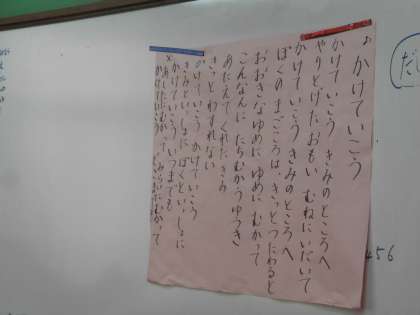 ♪ かけていこう
かけていこう きみのところへ
やりとげたおもい むねにいだいて
かけていこう きみのところへ
ぼくのまごころは きっとつたわると
おおきなゆめに ゆめに むかって
こんなんに たちむかうゆうき
あたえてくれたきみ
きっとわすれない
かけていこう かけていこう
きみといっしょに ぼくといっしょに
かけていこう いつまでも
かけていこう
456